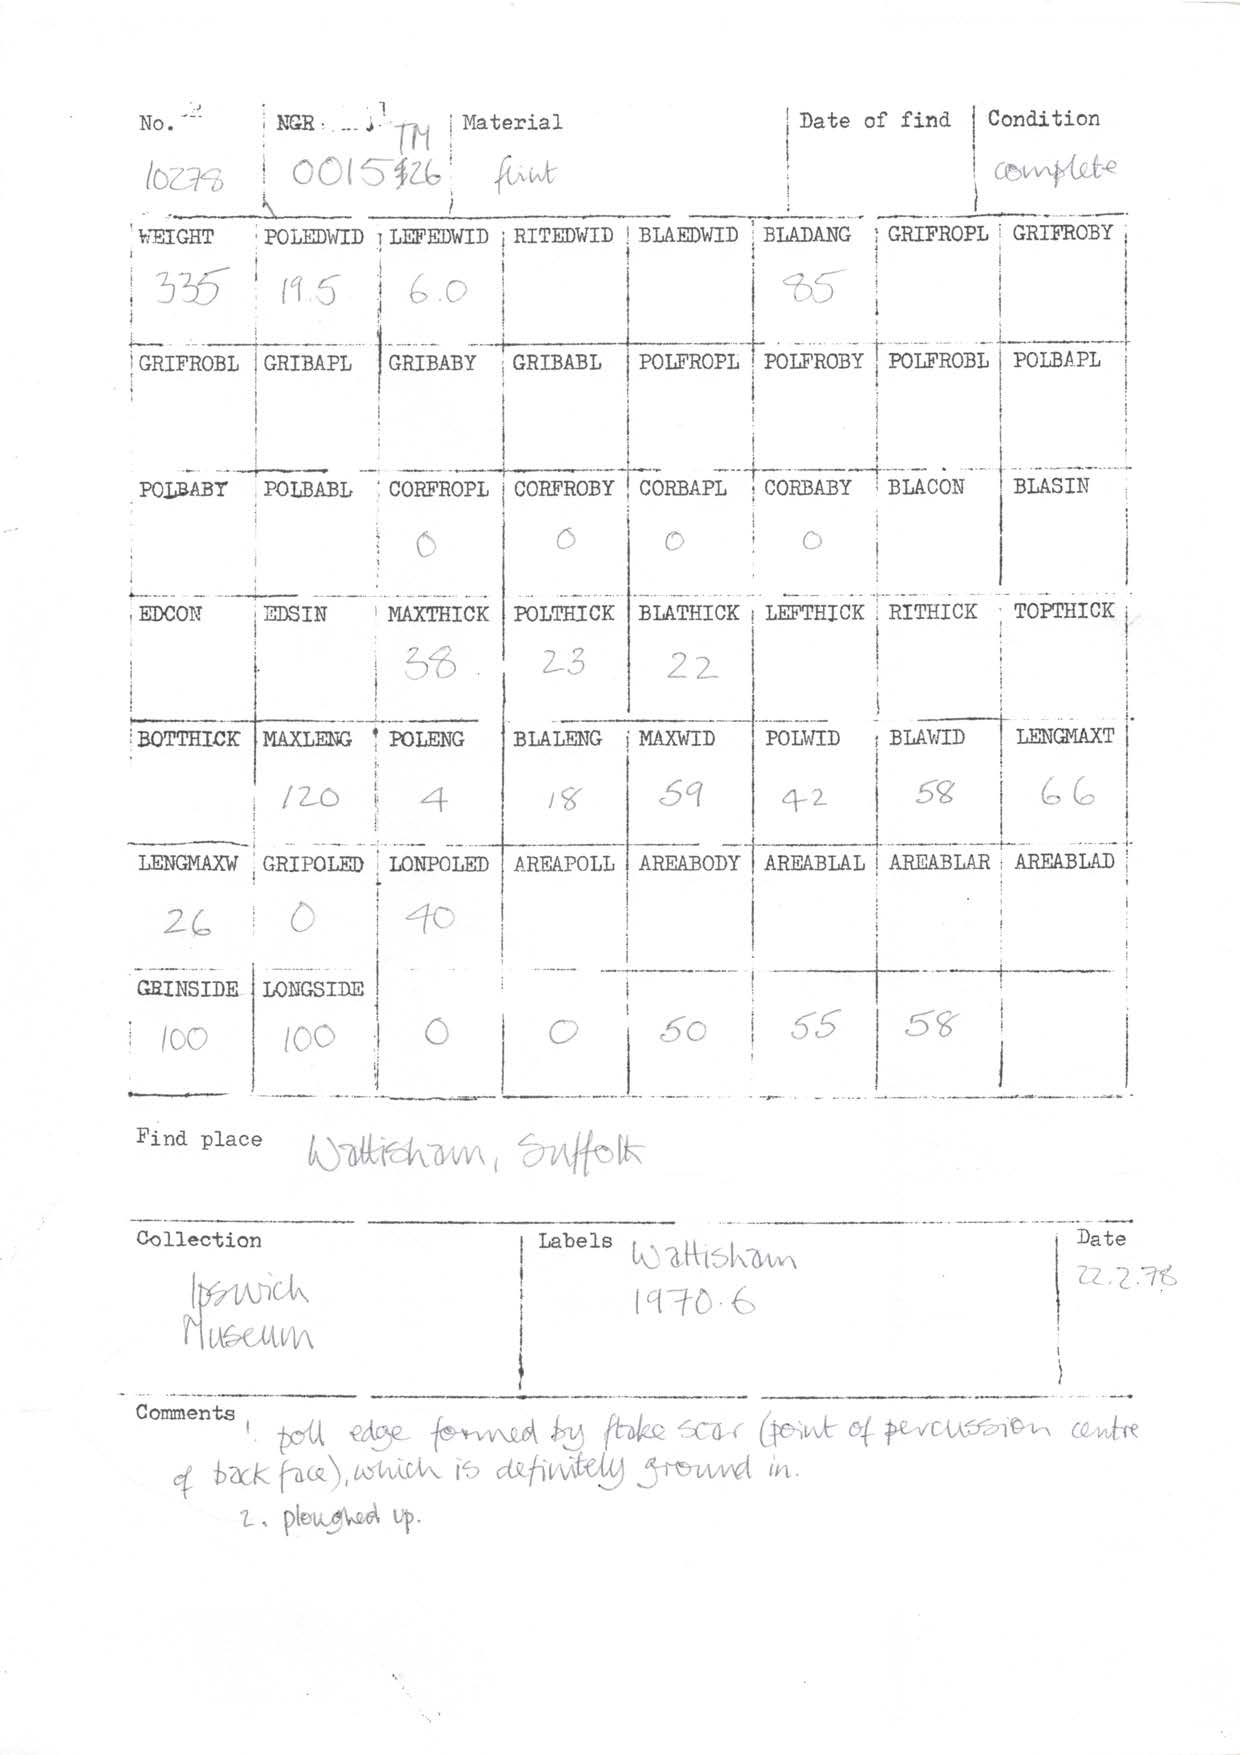 No. NGR Material Date of find Condition
10278 TM 0015 526 flint complete
WEIGHT POLEDWID LEFEDWID RITEDWID BLAEDWID BLADANG GRIFROPL GRIFROBY
335 19.5 6.0 85
GRIFROBL GRIBAPL GRIBABY GRIBABL POLFROPL POLFROBY POLFROBL POLBAPL
POLBABY POLBABL CORFROPL CORFROBY CORBAPL CORBABY BLACON BLASIN
0 0 0 0
EDCON EDSIN MAXTHICK POLTHICK BLATHICK LEFTHICK RITHICK TOPTHICK
38 23 22
BOTTHICK MAXLENG POLENG BLALENG MAXWID POLWID BLAWID LENGMAXT
120 4 18 59 42 58 66
LENGMAXW GRIPOLED LONPOLED AREAPOLL AREABODY AREABLAL AREABLAR AREABLAD
26 0 40
GRINSIDE LONGSIDE
100 100 0 0 50 55 58
Find place Wattisham, Suffolk
Collection Labels Wattisham Date
Ipswich 1970.6 22.2.78
Museum
Comments 1. poll edge formed by flake scar (point of percussion centre
of back face), which is definitely ground in.
2. ploughed up.